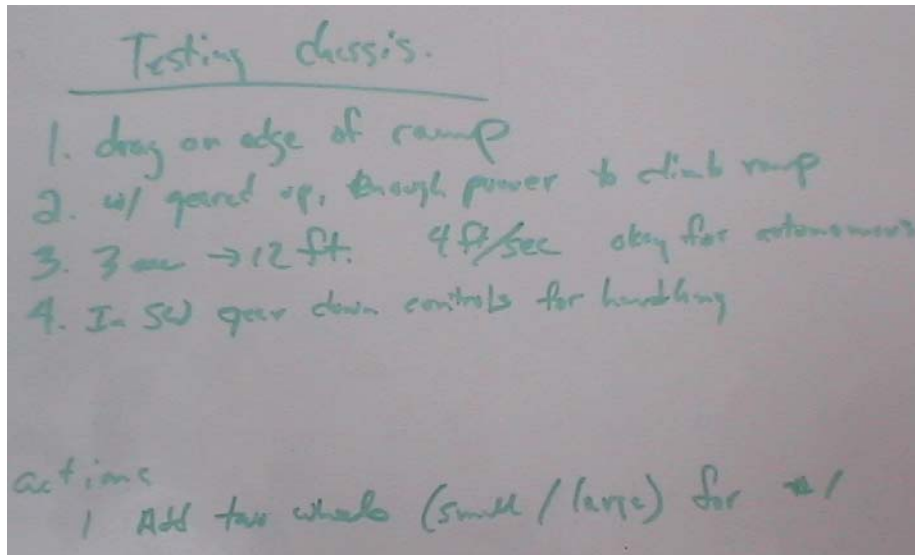 Testing chassis.
1. drag on edge of ramp
2. w/ geared up, enough power to climb ramp
3. 3 sec → 12 ft. 4 ft/sec okay for autonomous
4. In SW gear down controls for handling
actions
1 Add two wheels (small / large) for #1